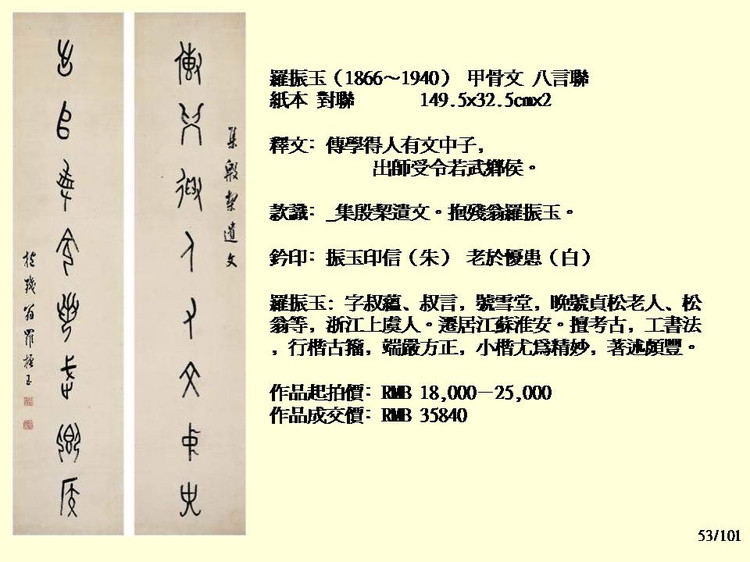 傳學得人有文中子
集殷栔遺文
出師受令若武鄉侯
抱殘翁羅振玉
羅振玉（1866～1940） 甲骨文 八言聯
紙本 對聯 149.5x32.5cmx2
釋文: 傳學得人有文中子,
出師受令若武鄉侯。
款識: _集殷栔遺文。抱殘翁羅振玉。
鈐印: 振玉印信（朱） 老於懮患（白）
羅振玉: 字叔蘊、叔言，號雪堂，晚號貞松老人、松
翁等，浙江上虞人。遷居江蘇淮安。擅考古，工書法
，行楷古籀，端嚴方正，小楷尤爲精妙，著述頗豐。
作品起拍價: RMB 18,000－25,000
作品成交價: RMB 35840
53/101